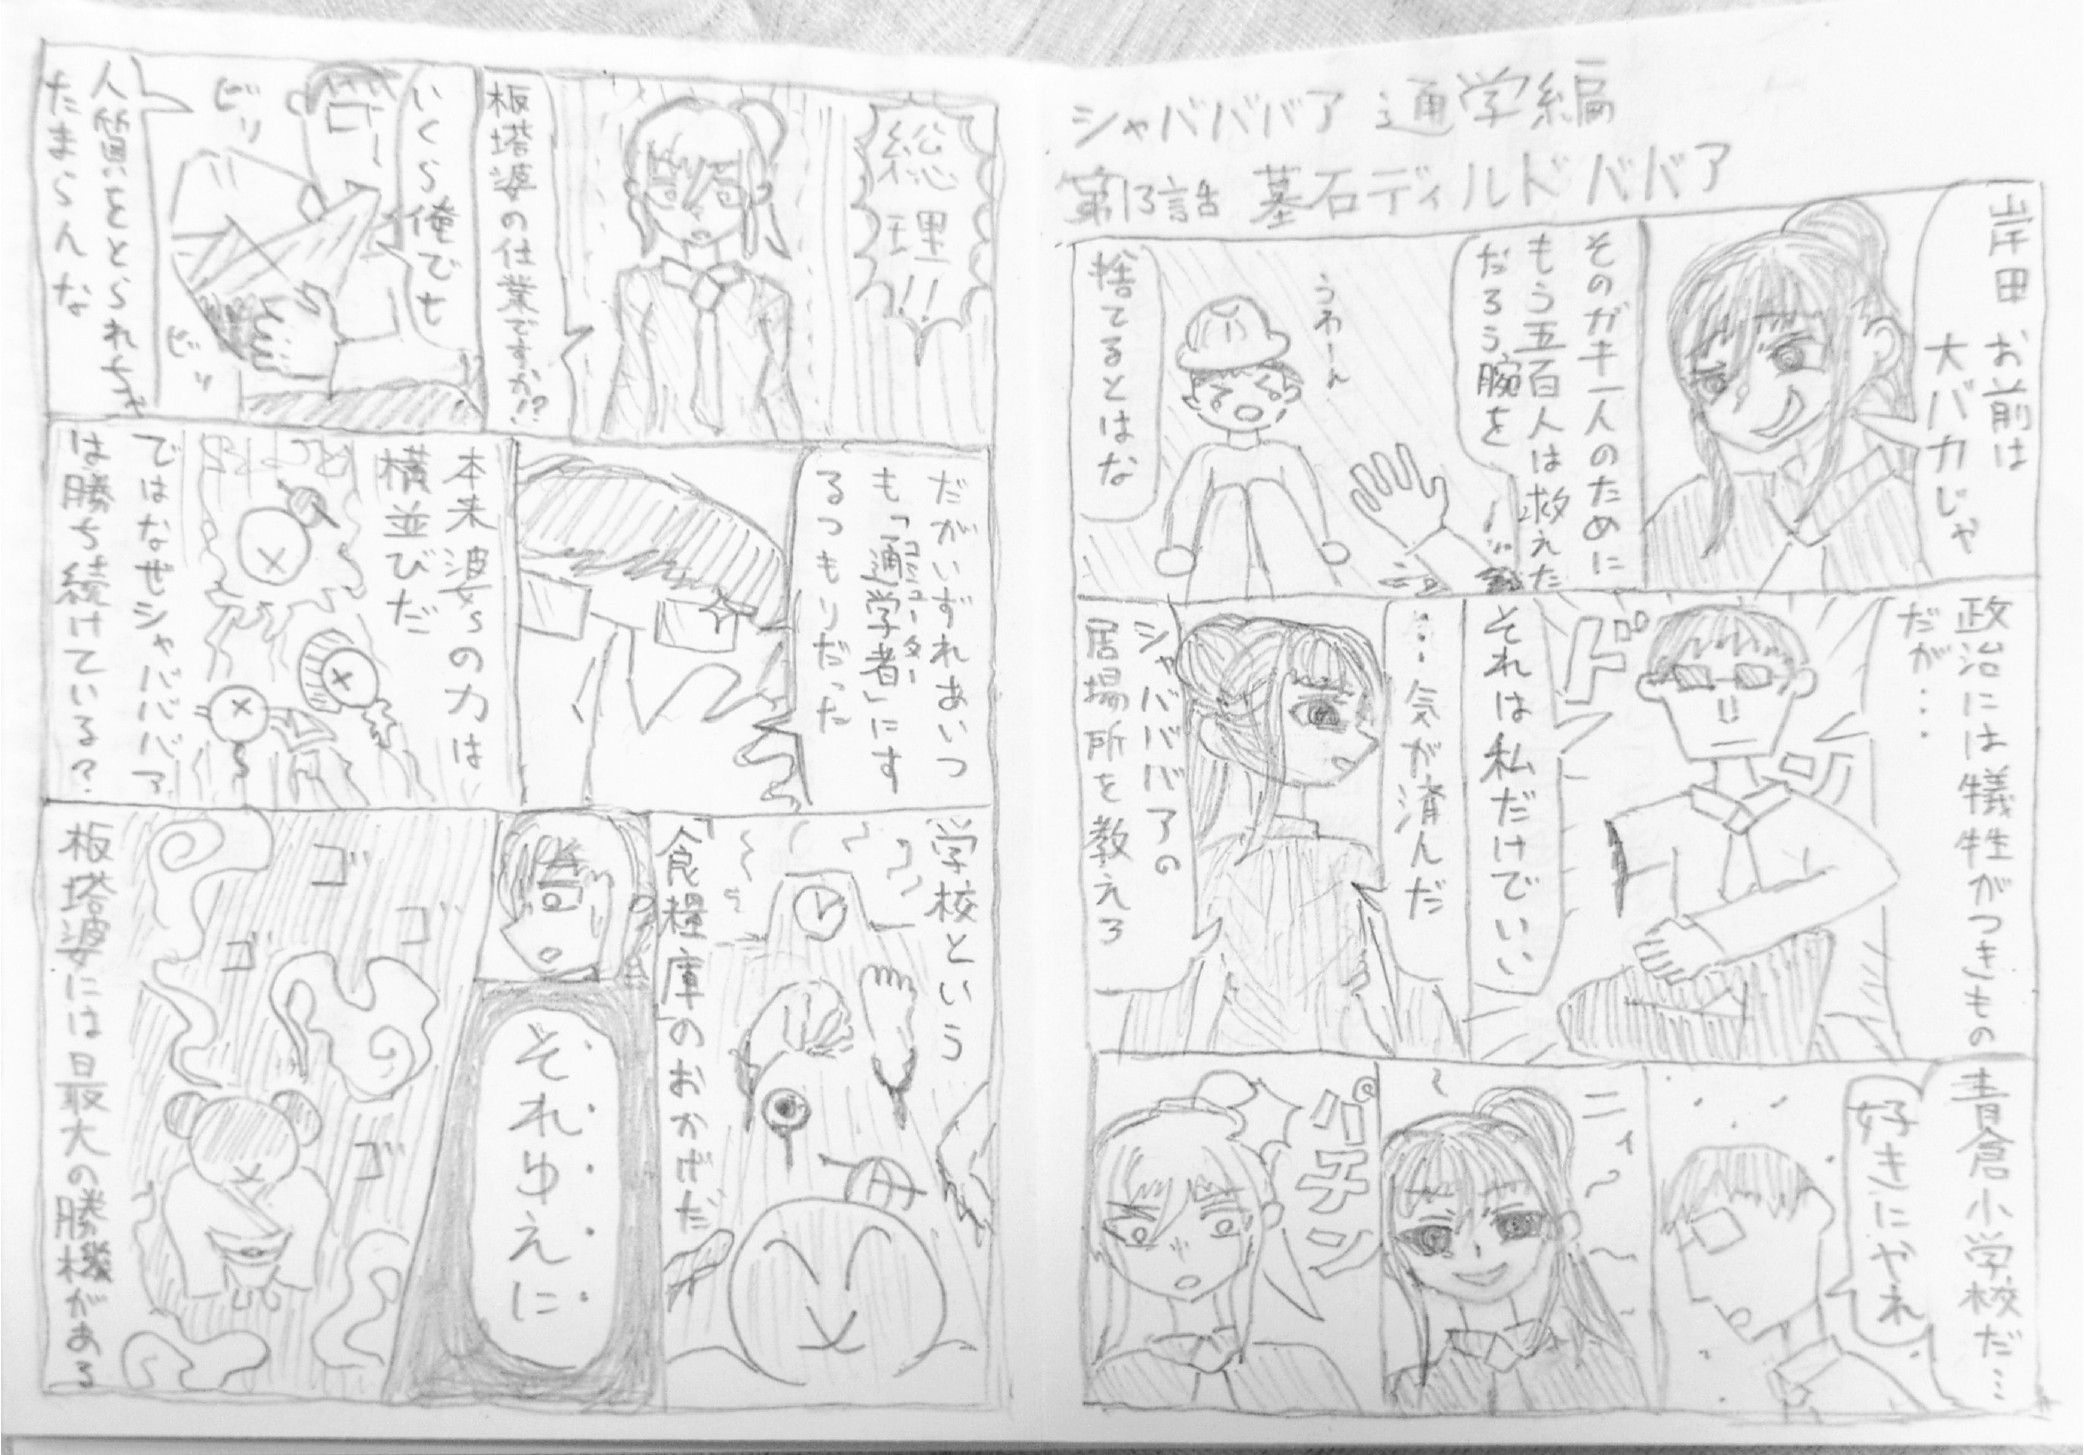 シャバババア 通学編
第13話 墓石ディルドババア
岸田 お前は
大バカじゃ
そのガキ一人のために
もう五百人は救えた
だろう腕を
うわーん
捨てるとはな
政治には犠牲がつきもの
だが…
ドドッ
それは私だけでいい
…気が済んだ
シャバババアの
居場所を教えろ
青倉小学校だ…
好きにやれ
ニィ〜
パチン
総理!!
板塔婆の仕業ですか!?
いくら俺でも
ビリ
ビッ
人質をとられちゃ
たまらんな
だがいずれあいつ
も「通学者」にす
コミューター
るつもりだった
本来婆sの力は
横並びだ
ではなぜシャバババア
は勝ち続けている?
学校という
「食糧庫」のおかげだ
それゆえに
ゴ
ゴ
ゴ
ゴ
板塔婆には最大の勝機がある